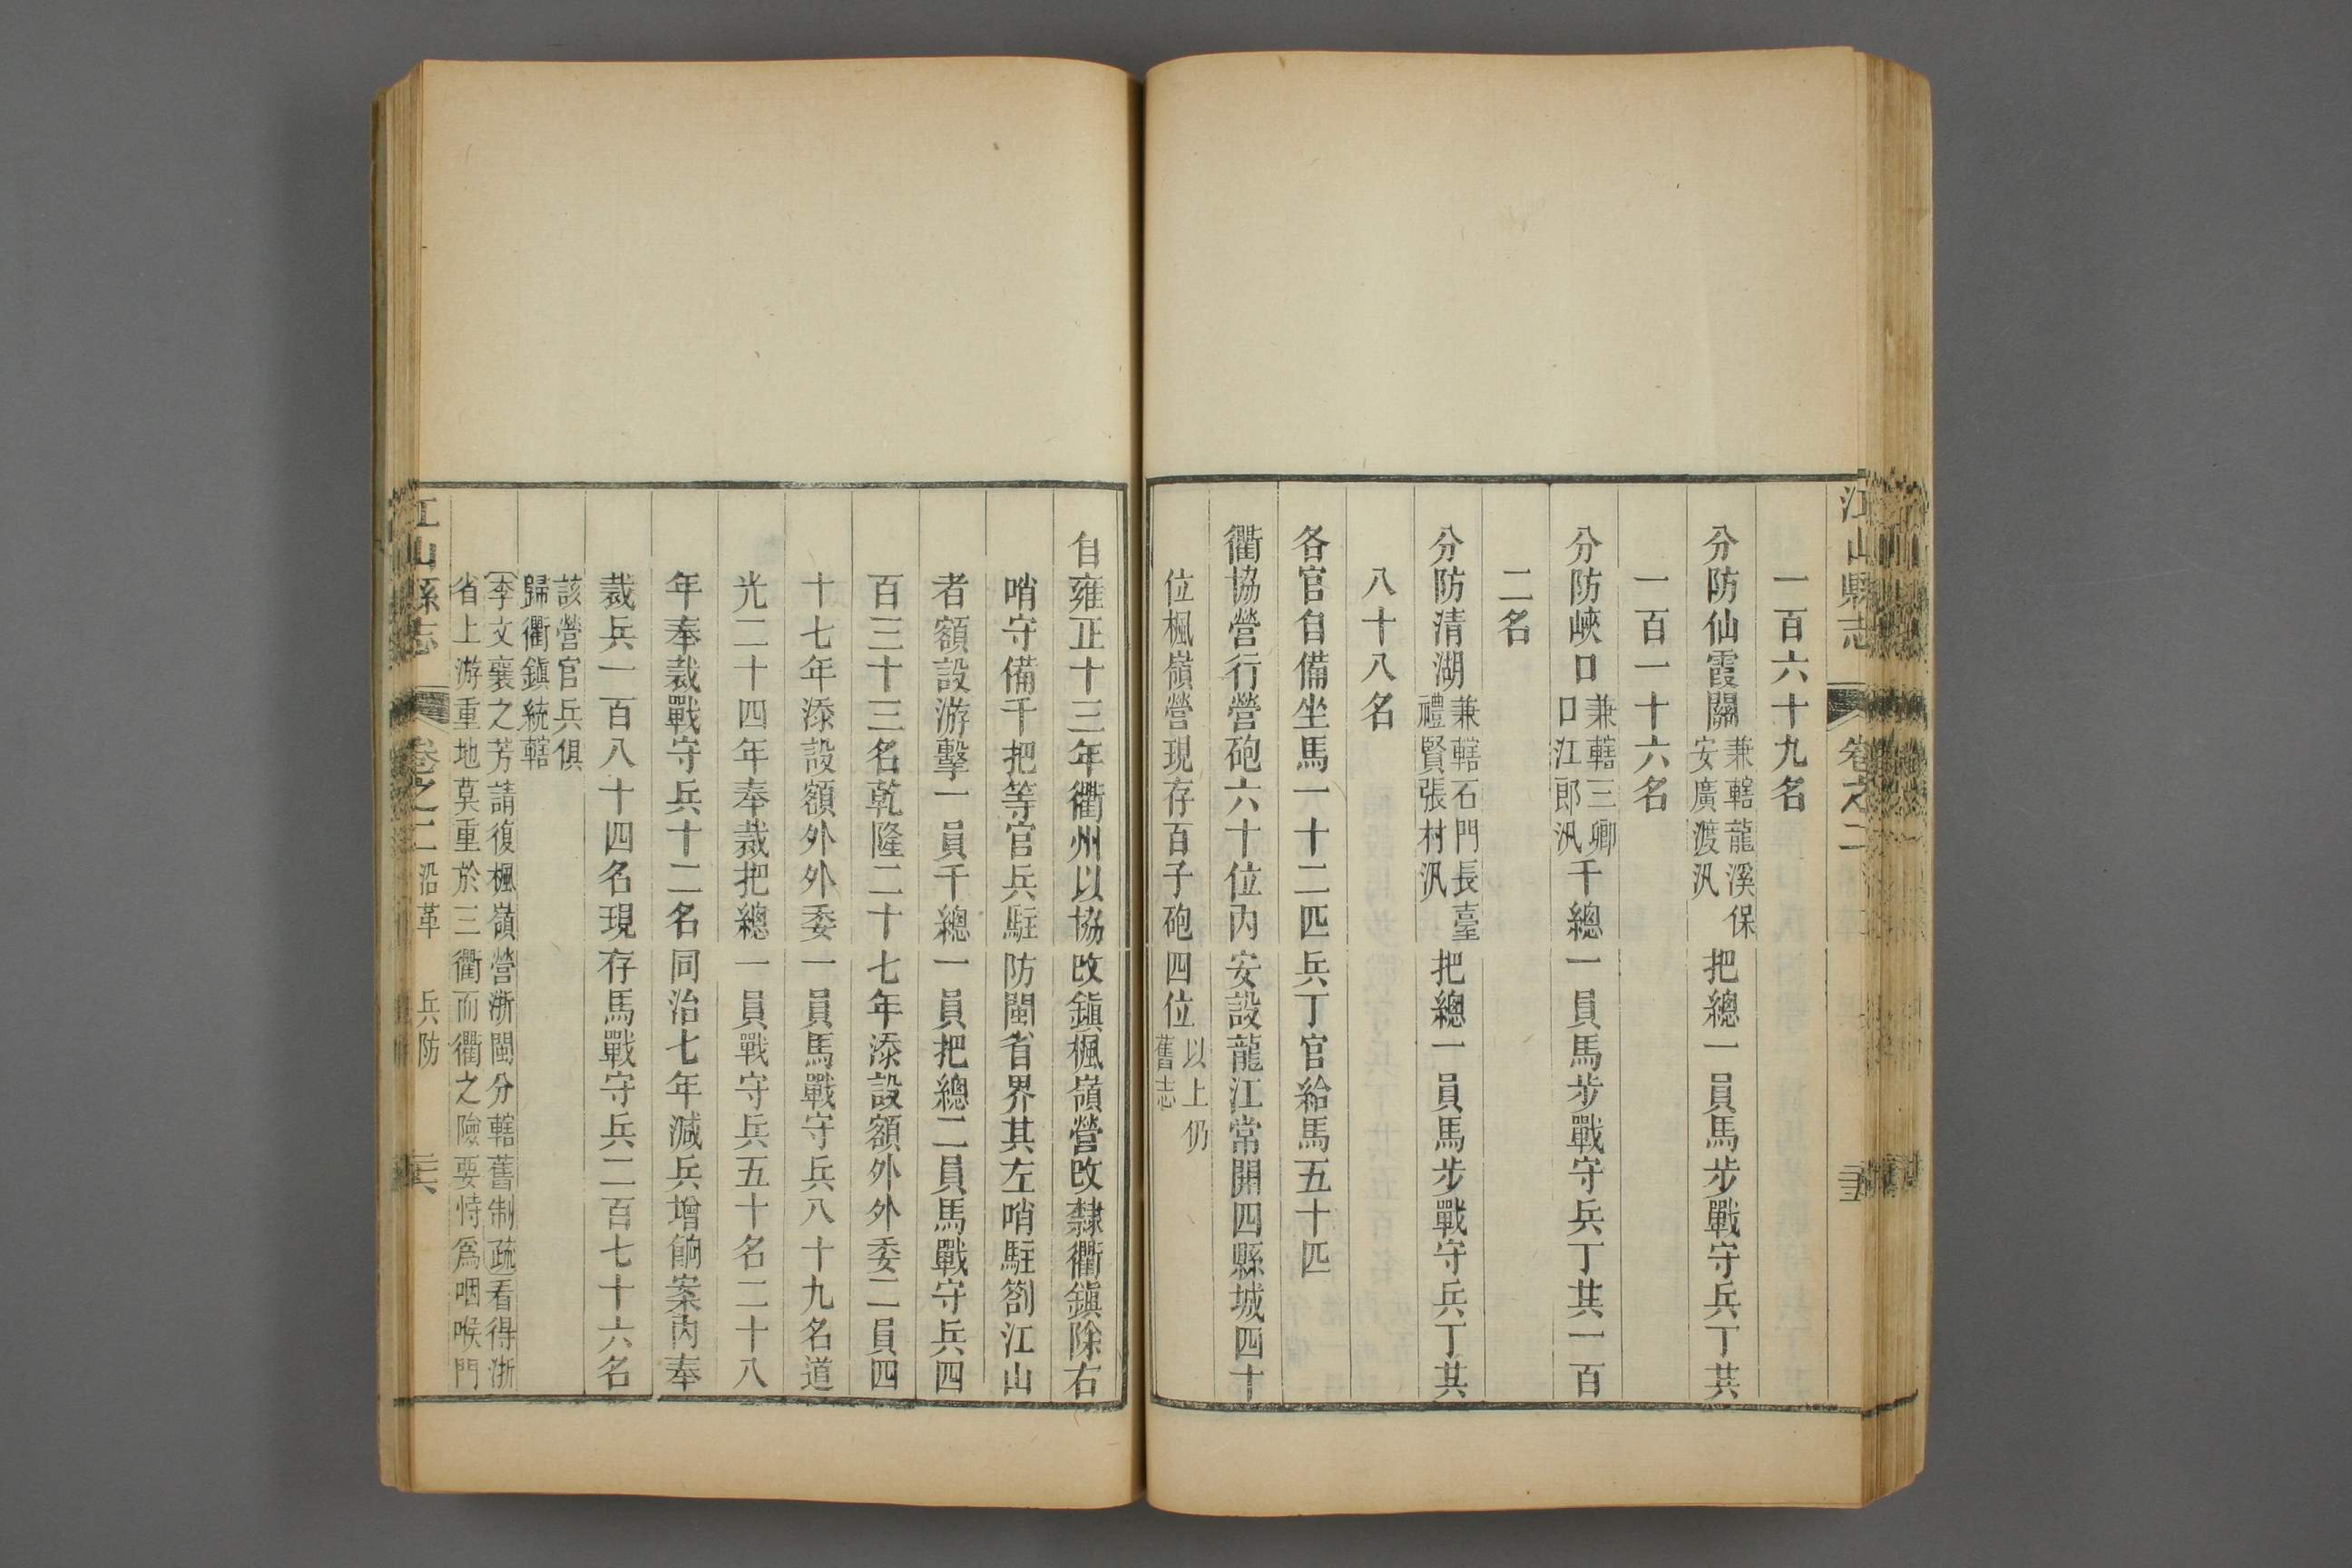 江山縣志 卷之二
一百六十九名
分防仙霞關兼轄龍溪保安廣渡汛把總一員馬步戰守兵丁共
一百一十六名
分防峽口兼轄三卿口江郎汛千總一員馬步戰守兵丁其一百
二名
分防清湖兼轄石門長臺禮賢張村汛把總一員馬步戰守兵丁其
八十八名
各官自備坐馬一十二匹兵丁官給馬五十匹
衢協營行營砲六十位內安設龍江常開四縣城四十
位楓嶺營現存百子砲四位以上仍舊志
自雍正十三年衢州以協改鎮楓嶺營改隸衢鎮除右
哨守備千把等官兵駐防閩省界其左哨駐劄江山
者額設游擊一員千總一員把總二員馬戰守兵四
百三十三名乾隆二十七年添設額外外委二員四
十七年添設額外外委一員馬戰守兵八十九名道
光二十四年奉裁把總一員戰守兵五十名二十八
年奉裁戰守兵十二名同治七年減兵增餉案內奉
裁兵一百八十四名現存馬戰守兵二百七十六名
該營官兵俱
歸衢鎮統轄
李文襄之芳請復楓嶺營浙閩分轄舊制疏看得浙
省上游重地莫重於三衢而衢之險要恃爲咽喉門
江山縣志 卷之二 沿革 兵防